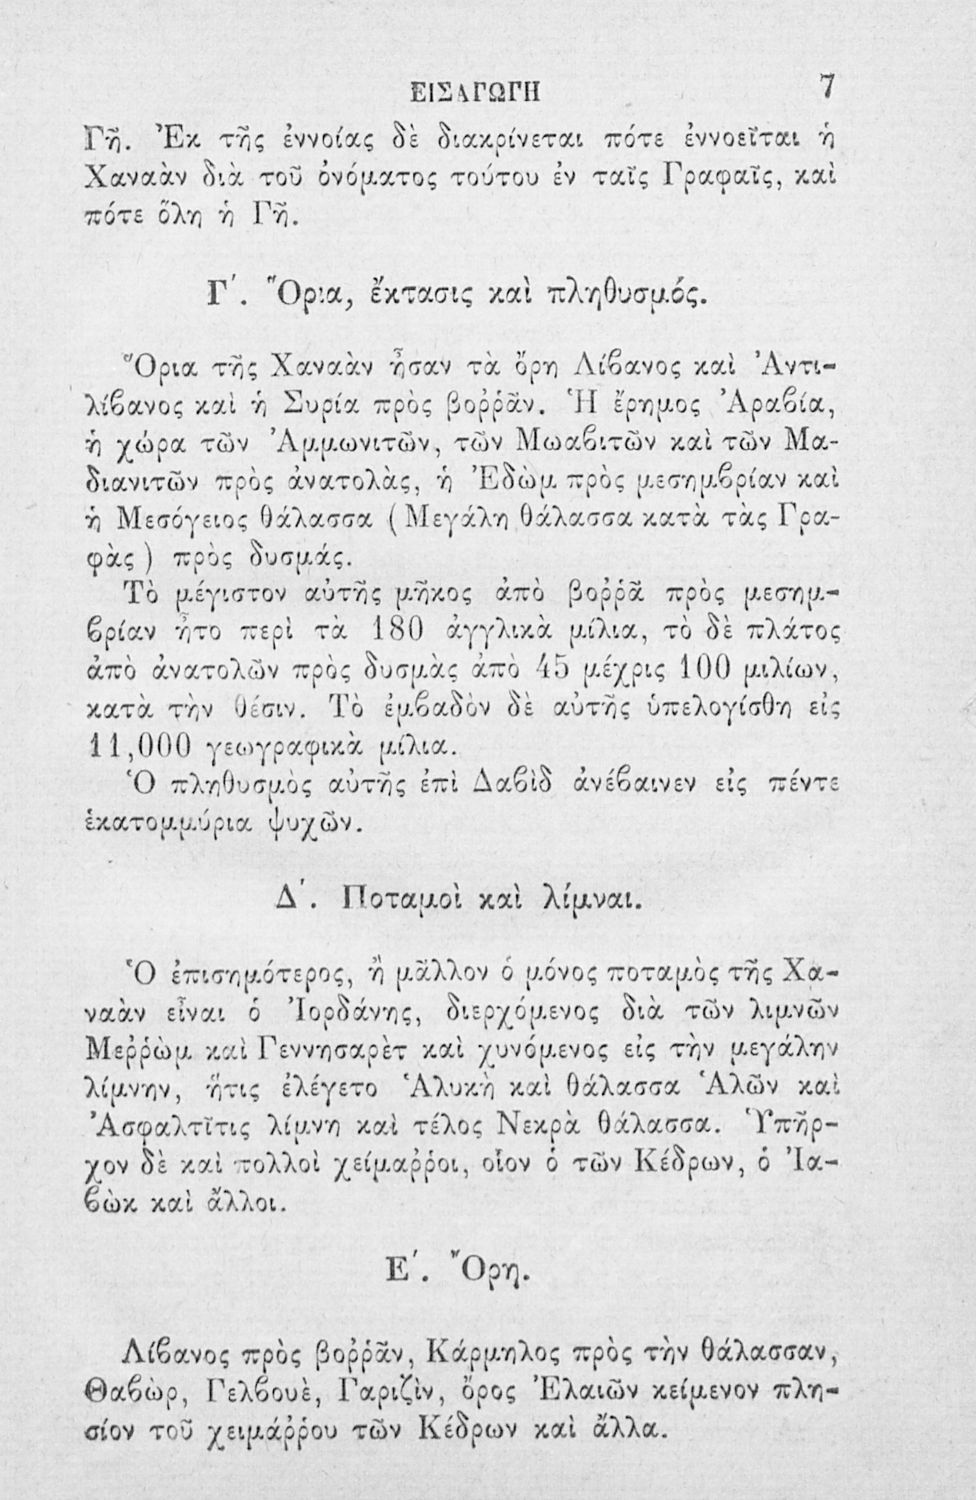 ΕΙΣΑΓΩΓΗ 7
Γῆ. Ἐκ τῆς ἐννοίας δὲ διακρίνεται πότε ἐννοεῖται ἡ
Χαναὰν διὰ τοῦ ὀνόματος τούτου ἐν ταῖς Γραφαῖς, καὶ
πότε ὅλη ἡ Γῆ.
Γ΄. Ὅρια, ἔκτασις καὶ πληθυσμός.
Ὅρια τῆς Χαναὰν ἦσαν τὰ ὄρη Λίβανος καὶ Ἀντι-
λίβανος καὶ ἡ Συρία πρὸς βοῤῥᾶν. Ἡ ἔρημος Ἀραβία,
ἡ χώρα τῶν Ἀμμωνιτῶν, τῶν Μωαβιτῶν καὶ τῶν Μα-
διανιτῶν πρὸς ἀνατολὰς, ἡ Ἐδὼμ πρὸς μεσημβρίαν καὶ
ἡ Μεσόγειος θάλασσα (Μεγάλη θάλασσα κατὰ τὰς Γρα-
φὰς) πρὸς δυσμάς.
Τὸ μέγιστον αὐτῆς μῆκος ἀπὸ βοῤῥᾶ πρὸς μεσημ-
βρίαν ἦτο περὶ τὰ 180 ἀγγλικὰ μίλια, τὸ δὲ πλάτος
ἀπὸ ἀνατολῶν πρὸς δυσμὰς ἀπὸ 45 μέχρις 100 μιλίων,
κατὰ τὴν θέσιν. Τὸ ἐμβαδὸν δὲ αὐτῆς ὑπελογίσθη εἰς
11,000 γεωγραφικὰ μίλια.
Ὁ πληθυσμὸς αὐτῆς ἐπὶ Δαβὶδ ἀνέβαινεν εἰς πέντε
ἑκατομμύρια ψυχῶν.
Δ΄. Ποταμοὶ καὶ λίμναι.
Ὁ ἐπισημότερος, ἢ μᾶλλον ὁ μόνος ποταμὸς τῆς Χα-
ναὰν εἶναι ὁ Ἰορδάνης, διερχόμενος διὰ τῶν λιμνῶν
Μεῤῥὼμ καὶ Γεννησαρὲτ καὶ χυνόμενος εἰς τὴν μεγάλην
λίμνην, ἥτις ἐλέγετο Ἁλυκὴ καὶ θάλασσα Ἁλῶν καὶ
Ἀσφαλτῖτις λίμνη καὶ τέλος Νεκρὰ θάλασσα. Ὑπῆρ-
χον δὲ καὶ πολλοὶ χείμαῤῥοι, οἷον ὁ τῶν Κέδρων, ὁ Ἰα-
βὼκ καὶ ἄλλοι.
Ε΄. Ὄρη.
Λίβανος πρὸς βοῤῥᾶν, Κάρμηλος πρὸς τὴν θάλασσαν,
Θαβὼρ, Γελβουὲ, Γαριζὶν, ὄρος Ἐλαιῶν κείμενον πλη-
σίον τοῦ χειμάῤῥου τῶν Κέδρων καὶ ἄλλα.